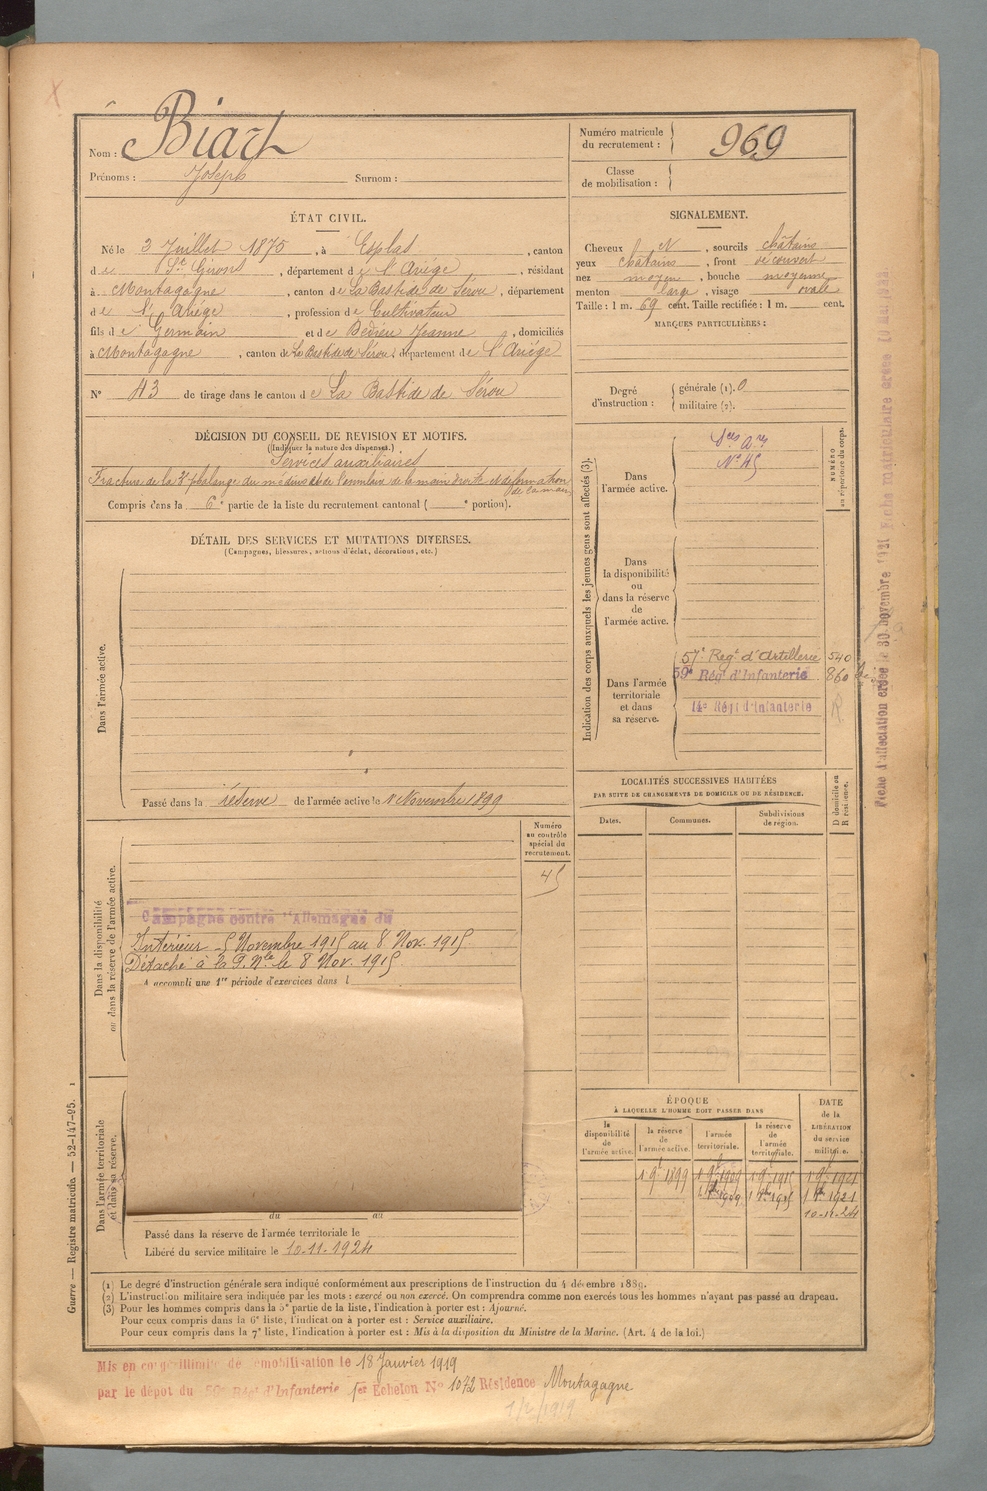 Nom : Biart
Prénoms : Joseph Surnom :
Numéro matricule du recrutement : 969
Classe de mobilisation :
ÉTAT CIVIL.
Né le 3 Juillet 1875, à Esplas, canton
de St Girons, département de l'Ariège, résidant
à Montagagne, canton de La Bastide de Sérou, département
de l'Ariége, profession de Cultivateur
fils de Germain et de Jeanne, domiciliés
à Montagagne, canton de La Bastide de Sérou, département de l'Ariége
N° 43 de tirage dans le canton de La Bastide de Sérou
SIGNALEMENT.
Cheveux et N, sourcils châtains
yeux châtains, front découvert
nez moyen, bouche moyenne
menton large, visage ovale
Taille : 1 m. 69 cent. Taille rectifiée : 1 m. cent.
MARQUES PARTICULIÈRES :
Degré d'instruction : générale (1). 0
militaire (2).
DÉCISION DU CONSEIL DE REVISION ET MOTIFS.
(Indiquer la nature des dispenses.)
Services auxiliaires
Fracture de la 3e phalange du médius et de l'annulaire de la main droite et déformation
de la main
Compris dans la 6e partie de la liste du recrutement cantonal ( e portion).
DÉTAIL DES SERVICES ET MUTATIONS DIVERSES.
(Campagnes, blessures, actions d'éclat, décorations, etc.)
Dans l'armée active.
Passé dans la réserve de l'armée active le 1 Novembre 1899
Indication des corps auxquels les jeunes gens sont affectés (3).
NUMÉRO au répertoire du corps.
Dans l'armée active.
N° 45
Dans la disponibilité ou dans la réserve de l'armée active.
Dans l'armée territoriale et dans sa réserve.
57e Regt d'Artillerie 540
59e Rég. d'Infanterie 860
14e Régt d'Infanterie
R
LOCALITÉS SUCCESSIVES HABITÉES
PAR SUITE DE CHANGEMENTS DE DOMICILE OU DE RÉSIDENCE.
D domicile ou R résidence.
Dates. Communes. Subdivisions de région.
Numéro au contrôle spécial du recrutement.
45
Dans la disponibilité ou dans la réserve de l'armée active.
Campagne contre l'Allemagne du
Intérieur 5 Novembre 1915 au 8 Nov. 1915
Détaché à la P. Nle le 8 Nov. 1915
A accompli une 1re période d'exercices dans l
Dans l'armée territoriale et dans sa réserve.
du au
Passé dans la réserve de l'armée territoriale le
Libéré du service militaire le 10-11-1924
ÉPOQUE
À LAQUELLE L'HOMME DOIT PASSER DANS
la disponibilité de l'armée active. la réserve de l'armée active. l'armée territoriale. la réserve de l'armée territoriale.
DATE de la LIBÉRATION du service militaire.
1 9e 1899 1 9e 1909 1 9e 1915 1 9e 1921
10-11-24
(1) Le degré d'instruction générale sera indiqué conformément aux prescriptions de l'instruction du 4 décembre 1889.
(2) L'instruction militaire sera indiquée par les mots : exercé ou non exercé. On comprendra comme non exercés tous les hommes n'ayant pas passé au drapeau.
(3) Pour les hommes compris dans la 5e partie de la liste, l'indication à porter est : Ajourné.
Pour ceux compris dans la 6e liste, l'indication à porter est : Service auxiliaire.
Pour ceux compris dans la 7e liste, l'indication à porter est : Mis à la disposition du Ministre de la Marine. (Art. 4 de la loi.)
Mis en congé illimité de démobilisation le 18 Janvier 1919
par le dépôt du 59e Régt d'Infanterie 1er Echelon N° 1072 Résidence Montagagne
Guerre — Registre matricule. — 52-147-95.
Fiche d'affectation créée le 30 novembre 1921 Fiche matriculaire créée